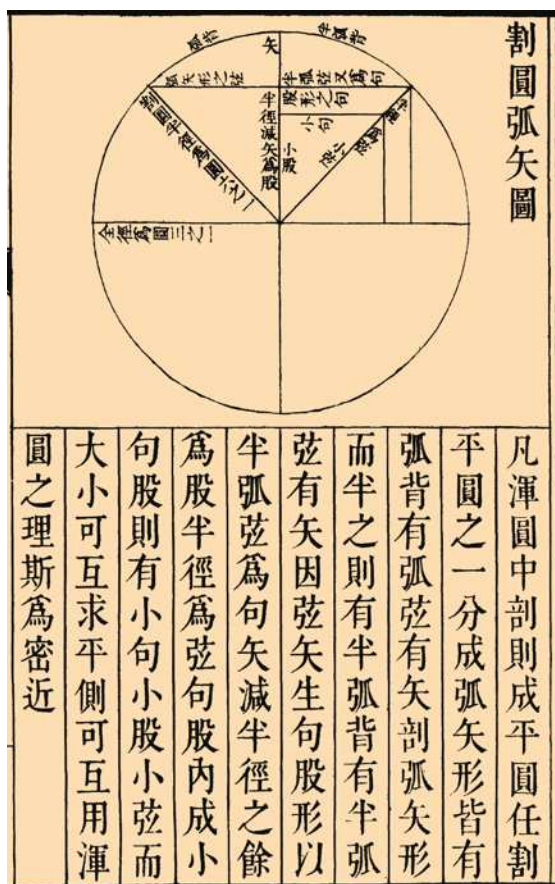 割圓弧矢圖
半弧背
矢
弧背
半弧弦又爲句
股形之句
小句
小股
小弦
半徑減矢爲股
弧矢形之弦
割圓半徑爲圓六之一
全徑爲圓三之一
凡渾圓中剖則成平圓任割
平圓之一分成弧矢形皆有
弧背有弧弦有矢剖弧矢形
而半之則有半弧背有半弧
弦有矢因弦矢生句股形以
半弧弦爲句矢減半徑之餘
爲股半徑爲弦句股內成小
句股則有小句小股小弦而
大小可互求平側可互用渾
圓之理斯爲密近